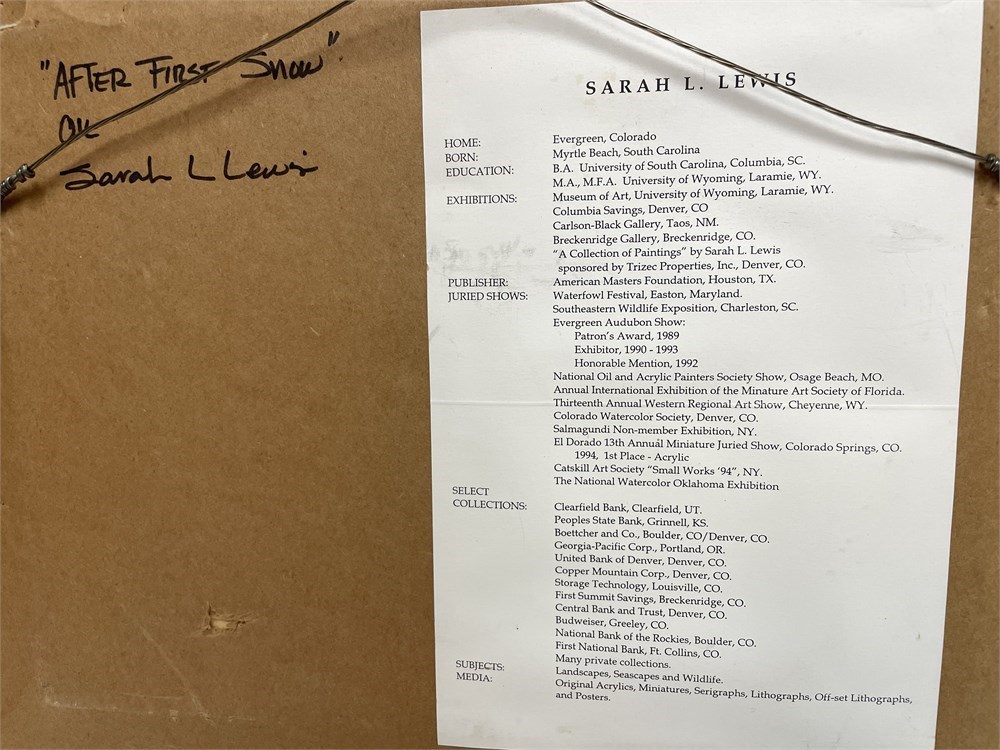 "AFTER FIRST SNOW"
OIL
Sarah L Lewis
SARAH L. LEWIS
HOME: Evergreen, Colorado
BORN: Myrtle Beach, South Carolina
EDUCATION: B.A. University of South Carolina, Columbia, SC.
M.A., M.F.A. University of Wyoming, Laramie, WY.
EXHIBITIONS: Museum of Art, University of Wyoming, Laramie, WY.
Columbia Savings, Denver, CO
Carlson-Black Gallery, Taos, NM.
Breckenridge Gallery, Breckenridge, CO.
"A Collection of Paintings" by Sarah L. Lewis
sponsored by Trizec Properties, Inc., Denver, CO.
PUBLISHER: American Masters Foundation, Houston, TX.
JURIED SHOWS: Waterfowl Festival, Easton, Maryland.
Southeastern Wildlife Exposition, Charleston, SC.
Evergreen Audubon Show:
Patron's Award, 1989
Exhibitor, 1990 - 1993
Honorable Mention, 1992
National Oil and Acrylic Painters Society Show, Osage Beach, MO.
Annual International Exhibition of the Minature Art Society of Florida.
Thirteenth Annual Western Regional Art Show, Cheyenne, WY.
Colorado Watercolor Society, Denver, CO.
Salmagundi Non-member Exhibition, NY.
El Dorado 13th Annual Miniature Juried Show, Colorado Springs, CO.
1994, 1st Place - Acrylic
Catskill Art Society "Small Works '94", NY.
The National Watercolor Oklahoma Exhibition
SELECT
COLLECTIONS: Clearfield Bank, Clearfield, UT.
Peoples State Bank, Grinnell, KS.
Boettcher and Co., Boulder, CO/Denver, CO.
Georgia-Pacific Corp., Portland, OR.
United Bank of Denver, Denver, CO.
Copper Mountain Corp., Denver, CO.
Storage Technology, Louisville, CO.
First Summit Savings, Breckenridge, CO.
Central Bank and Trust, Denver, CO.
Budweiser, Greeley, CO.
National Bank of the Rockies, Boulder, CO.
First National Bank, Ft. Collins, CO.
Many private collections.
SUBJECTS: Landscapes, Seascapes and Wildlife.
MEDIA: Original Acrylics, Miniatures, Serigraphs, Lithographs, Off-set Lithographs,
and Posters.